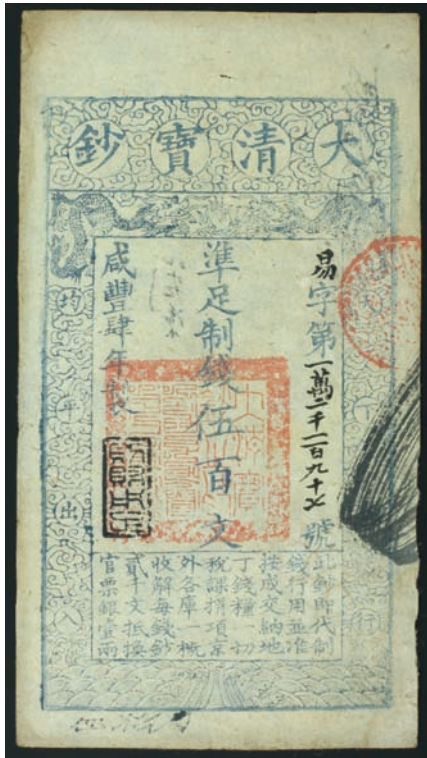 大清寶鈔
易字第一萬二千一百九十七號
準足制錢伍百文
咸豐肆年製
下
行
均平出入
此鈔即代制
錢行用並准
按成交納地
丁錢糧一切
稅課捐項京
外各庫一概
收解每錢鈔
貳千文抵換
官票銀壹兩